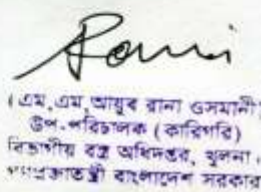 (এম,এম,আয়ুব রানা ওসমানী)
উপ-পরিচালক (কারিগরি)
বিভাগীয় বস্ত্র অধিদপ্তর, খুলনা।
গণপ্রজাতন্ত্রী বাংলাদেশ সরকার